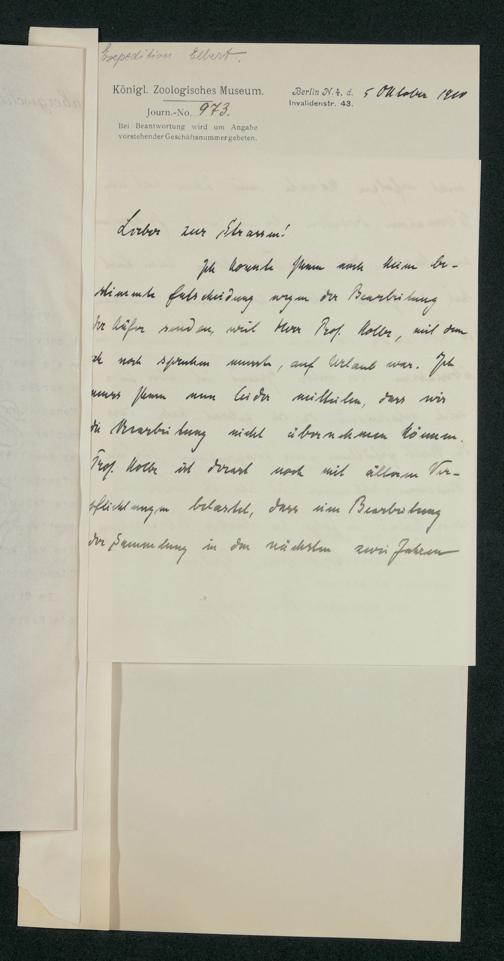 Expedition Elbert.
Königl. Zoologisches Museum.
Journ.-No. 973.
Bei Beantwortung wird um Angabe
vorstehender Geschäftsnummer gebeten.
Berlin N. 4, d. 5 Oktober 1910
Invalidenstr. 43.
Lieber zur Strassen!
Ich konnte Ihnen noch keine be-
stimmte Entscheidung wegen der Bearbeitung
der Käfer senden, weil Herr Prof. Kolbe, mit dem
ich noch sprechen musste, auf Urlaub war. Ich
muss Ihnen nun leider mittheilen, dass wir
die Bearbeitung nicht übernehmen können.
Prof. Kolbe ist derart noch mit älteren Ver-
pflichtungen belastet, dass eine Bearbeitung
der Sammlung in den nächsten zwei Jahren